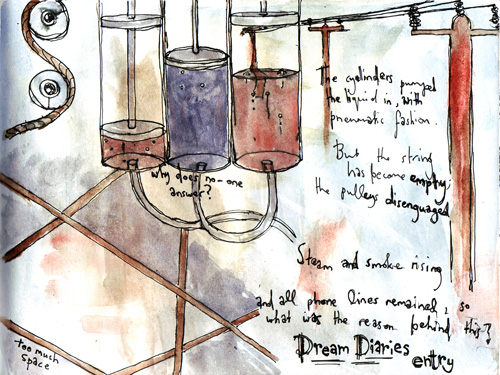 The cylinders pumped
the liquid in, with
pneumatic fashion.
But the string
has become empty;
the pulleys disengaged
why does no-one
answer?
Steam and smoke rising
and all phone lines remained, so
what was the reason behind this?
Dream Diaries
entry
too much
space